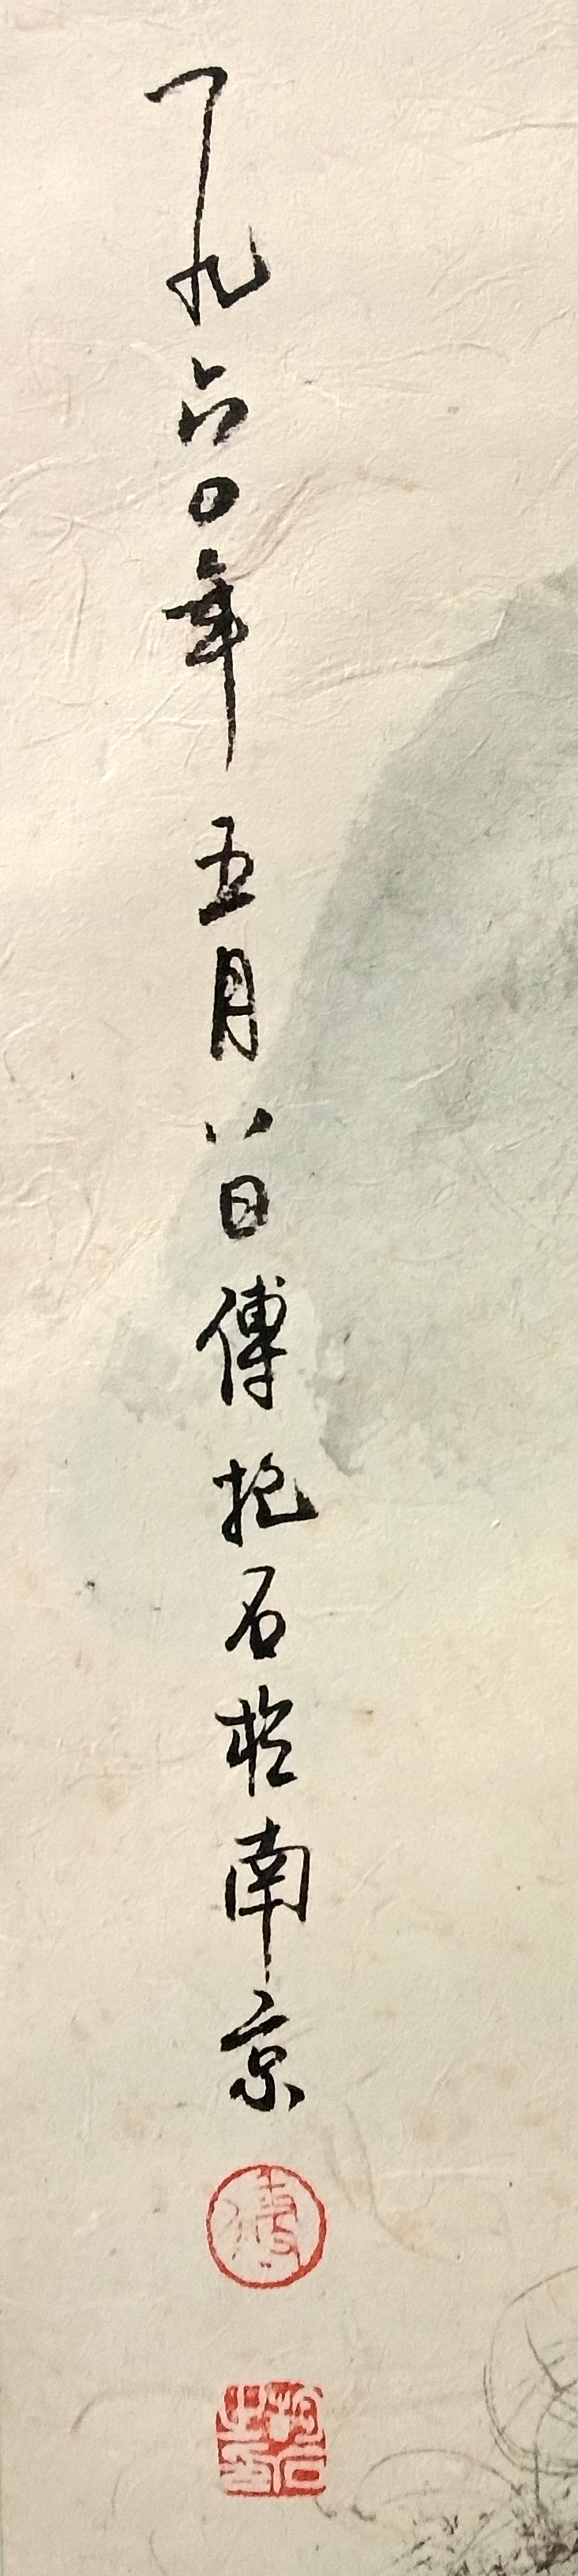 一九六〇年五月八日傅抱石於南京
傅
抱石之印